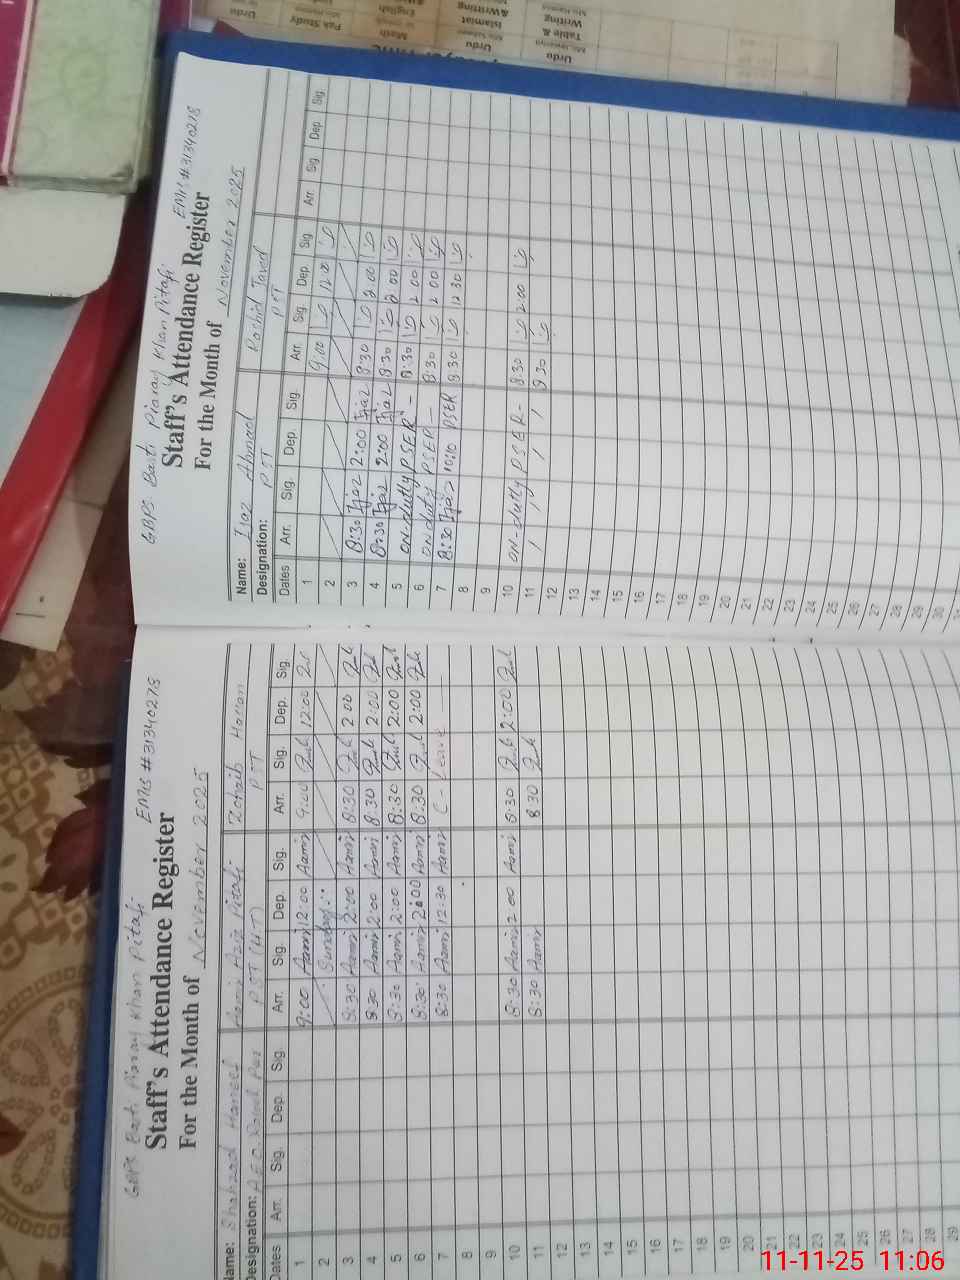 GBPS Basti Piaray Khan Pitafi
EMIS #31340278
Staff's Attendance Register
For the Month of November 2025
Name: Shahzad Haneef Aamir Aziz Pitafi Zohaib Hassan
Designation: PST (HT) PST
Dates Arr. Sig. Dep. Sig. Arr. Sig. Dep. Sig. Arr. Sig. Dep. Sig.
1 9:00 Aamir 12:00 Aamir 9:00 12:00
2 Sunday
3 8:30 Aamir 2:00 Aamir 8:30 2:00
4 8:30 Aamir 2:00 Aamir 8:30 2:00
5 8:30 Aamir 2:00 Aamir 8:30 2:00
6 8:30 Aamir 2:00 Aamir 8:30 2:00
7 8:30 Aamir 12:30 Aamir C-Leave
8
9
10 8:30 Aamir 2:00 Aamir 8:30 2:00
11 8:30 Aamir 8:30
12
13
14
15
16
17
18
19
20
21
22
23
24
25
26
27
28
29
GBPS Basti Piaray Khan Pitafi
EMIS #31340278
Staff's Attendance Register
For the Month of November 2025
Name: Ijaz Ahmad Rashid Javed
Designation: PST PST
Dates Arr. Sig. Dep. Sig. Arr. Sig. Dep. Sig. Arr. Sig. Dep. Sig.
1 9:00 12:00
2
3 8:30 Ijaz 2:00 Ijaz 8:30 2:00
4 8:30 Ijaz 2:00 Ijaz 8:30 2:00
5 ON-dutly PSER - 8:30 2:00
6 ON duty PSER - 8:30 2:00
7 8:30 Ijaz 10:10 PSER 8:30 12:30
8
9
10 ON-dutly PSER - 8:30 2:00
11 / / / / 8:30
12
13
14
15
16
17
18
19
20
21
22
23
24
25
26
27
28
29
30
31
Urdu
Pak Study
Math
English
Urdu
Islamiat
&Writting
Urdu
Table &
Writting
11-11-25 11:06